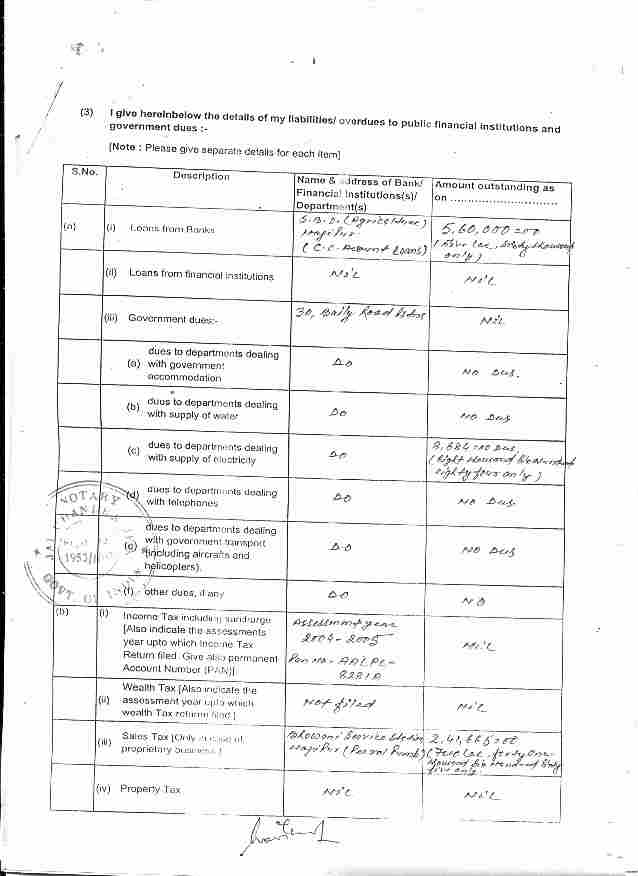 (3) I give hereinbelow the details of my liabilities/ overdues to public financial institutions and
government dues :-
[Note : Please give separate details for each item]
S.No. Description Name & address of Bank/
Financial Institutions(s)/
Department(s) Amount outstanding as
on ..............................
(a) (i) Loans from Banks
(Agriculture)
(C.C. Account Loans)
5,60,000=00
only)
(ii) Loans from financial institutions Nil Nil
(iii) Government dues:- 30, Baily Road Nil
dues to departments dealing
(a) with government
accommodation
Do No Dus.
(b) dues to departments dealing
with supply of water
Do No Dus
(c) dues to departments dealing
with supply of electricity
Do
eighty four only)
(d) dues to departments dealing
with telephones
Do No Dus.
dues to departments dealing
(e) with government transport
(including aircrafts and
helicopters).
Do No Dus
(f) other dues, if any Do No
(b) (i) Income Tax including surcharge
[Also indicate the assessments
year upto which Income Tax
Return filed. Give also permanent
Account Number (PAN)]
Assessment year
2004-2005
Nil
(ii) Wealth Tax [Also indicate the
assessment year upto which
wealth Tax returns filed.]
Not filed Nil
(iii) Sales Tax [Only in case of
proprietary business.]
Service Station
five only.
(iv) Property Tax Nil Nil
NOTARY